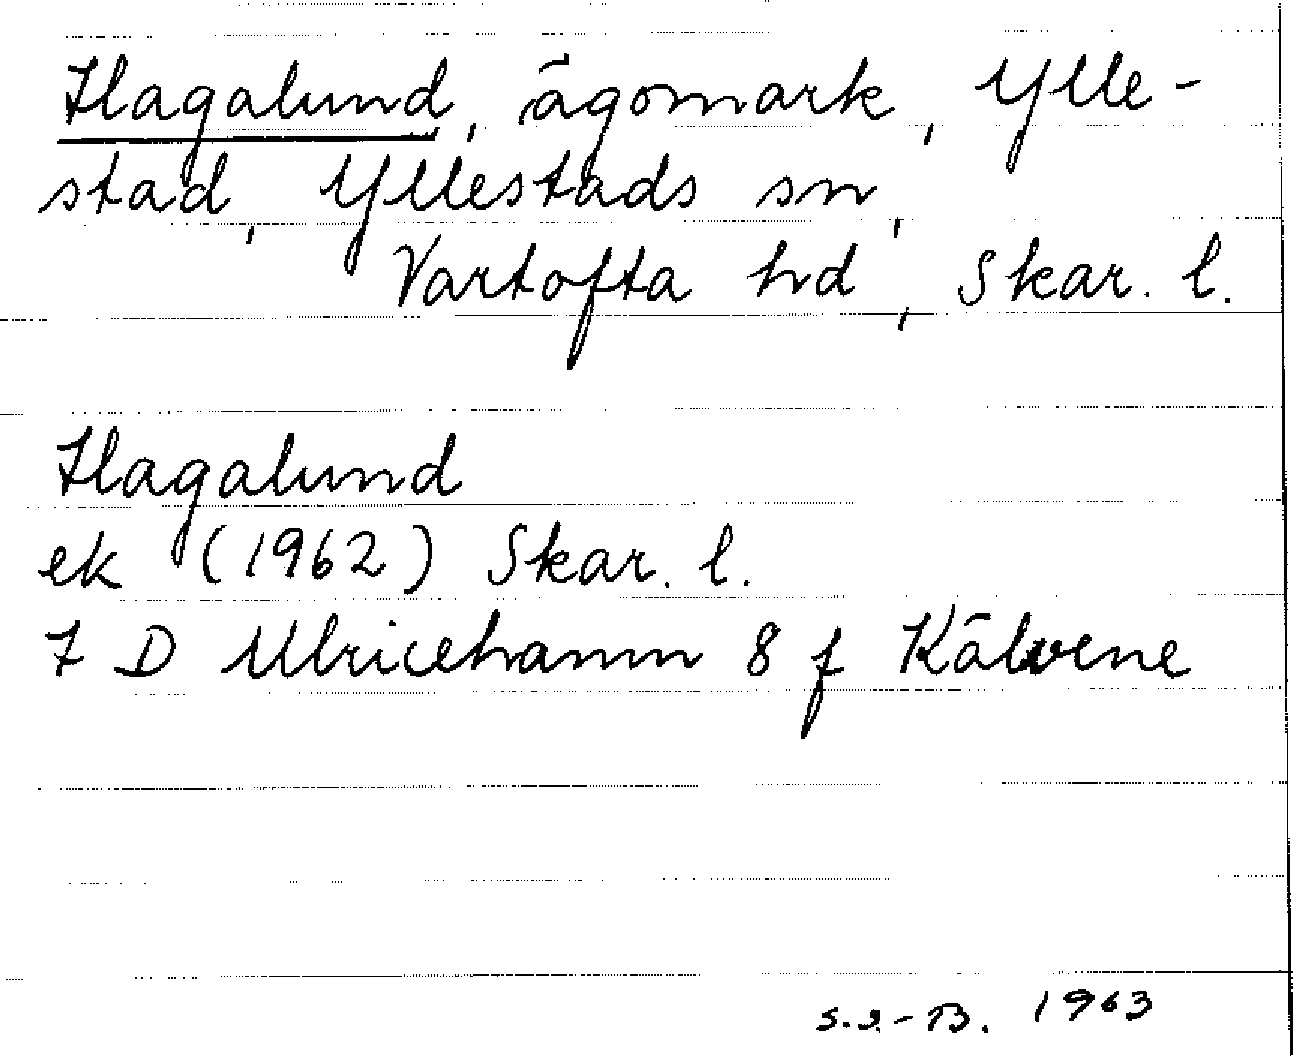 Hagalund, ägomark, Ylle-
stad, Yllestads sn,
Vartofta hd, Skar. l.
Hagalund
ek (1962) Skar. l.
7 D Ulricehamn 8 f Kälvene
1963